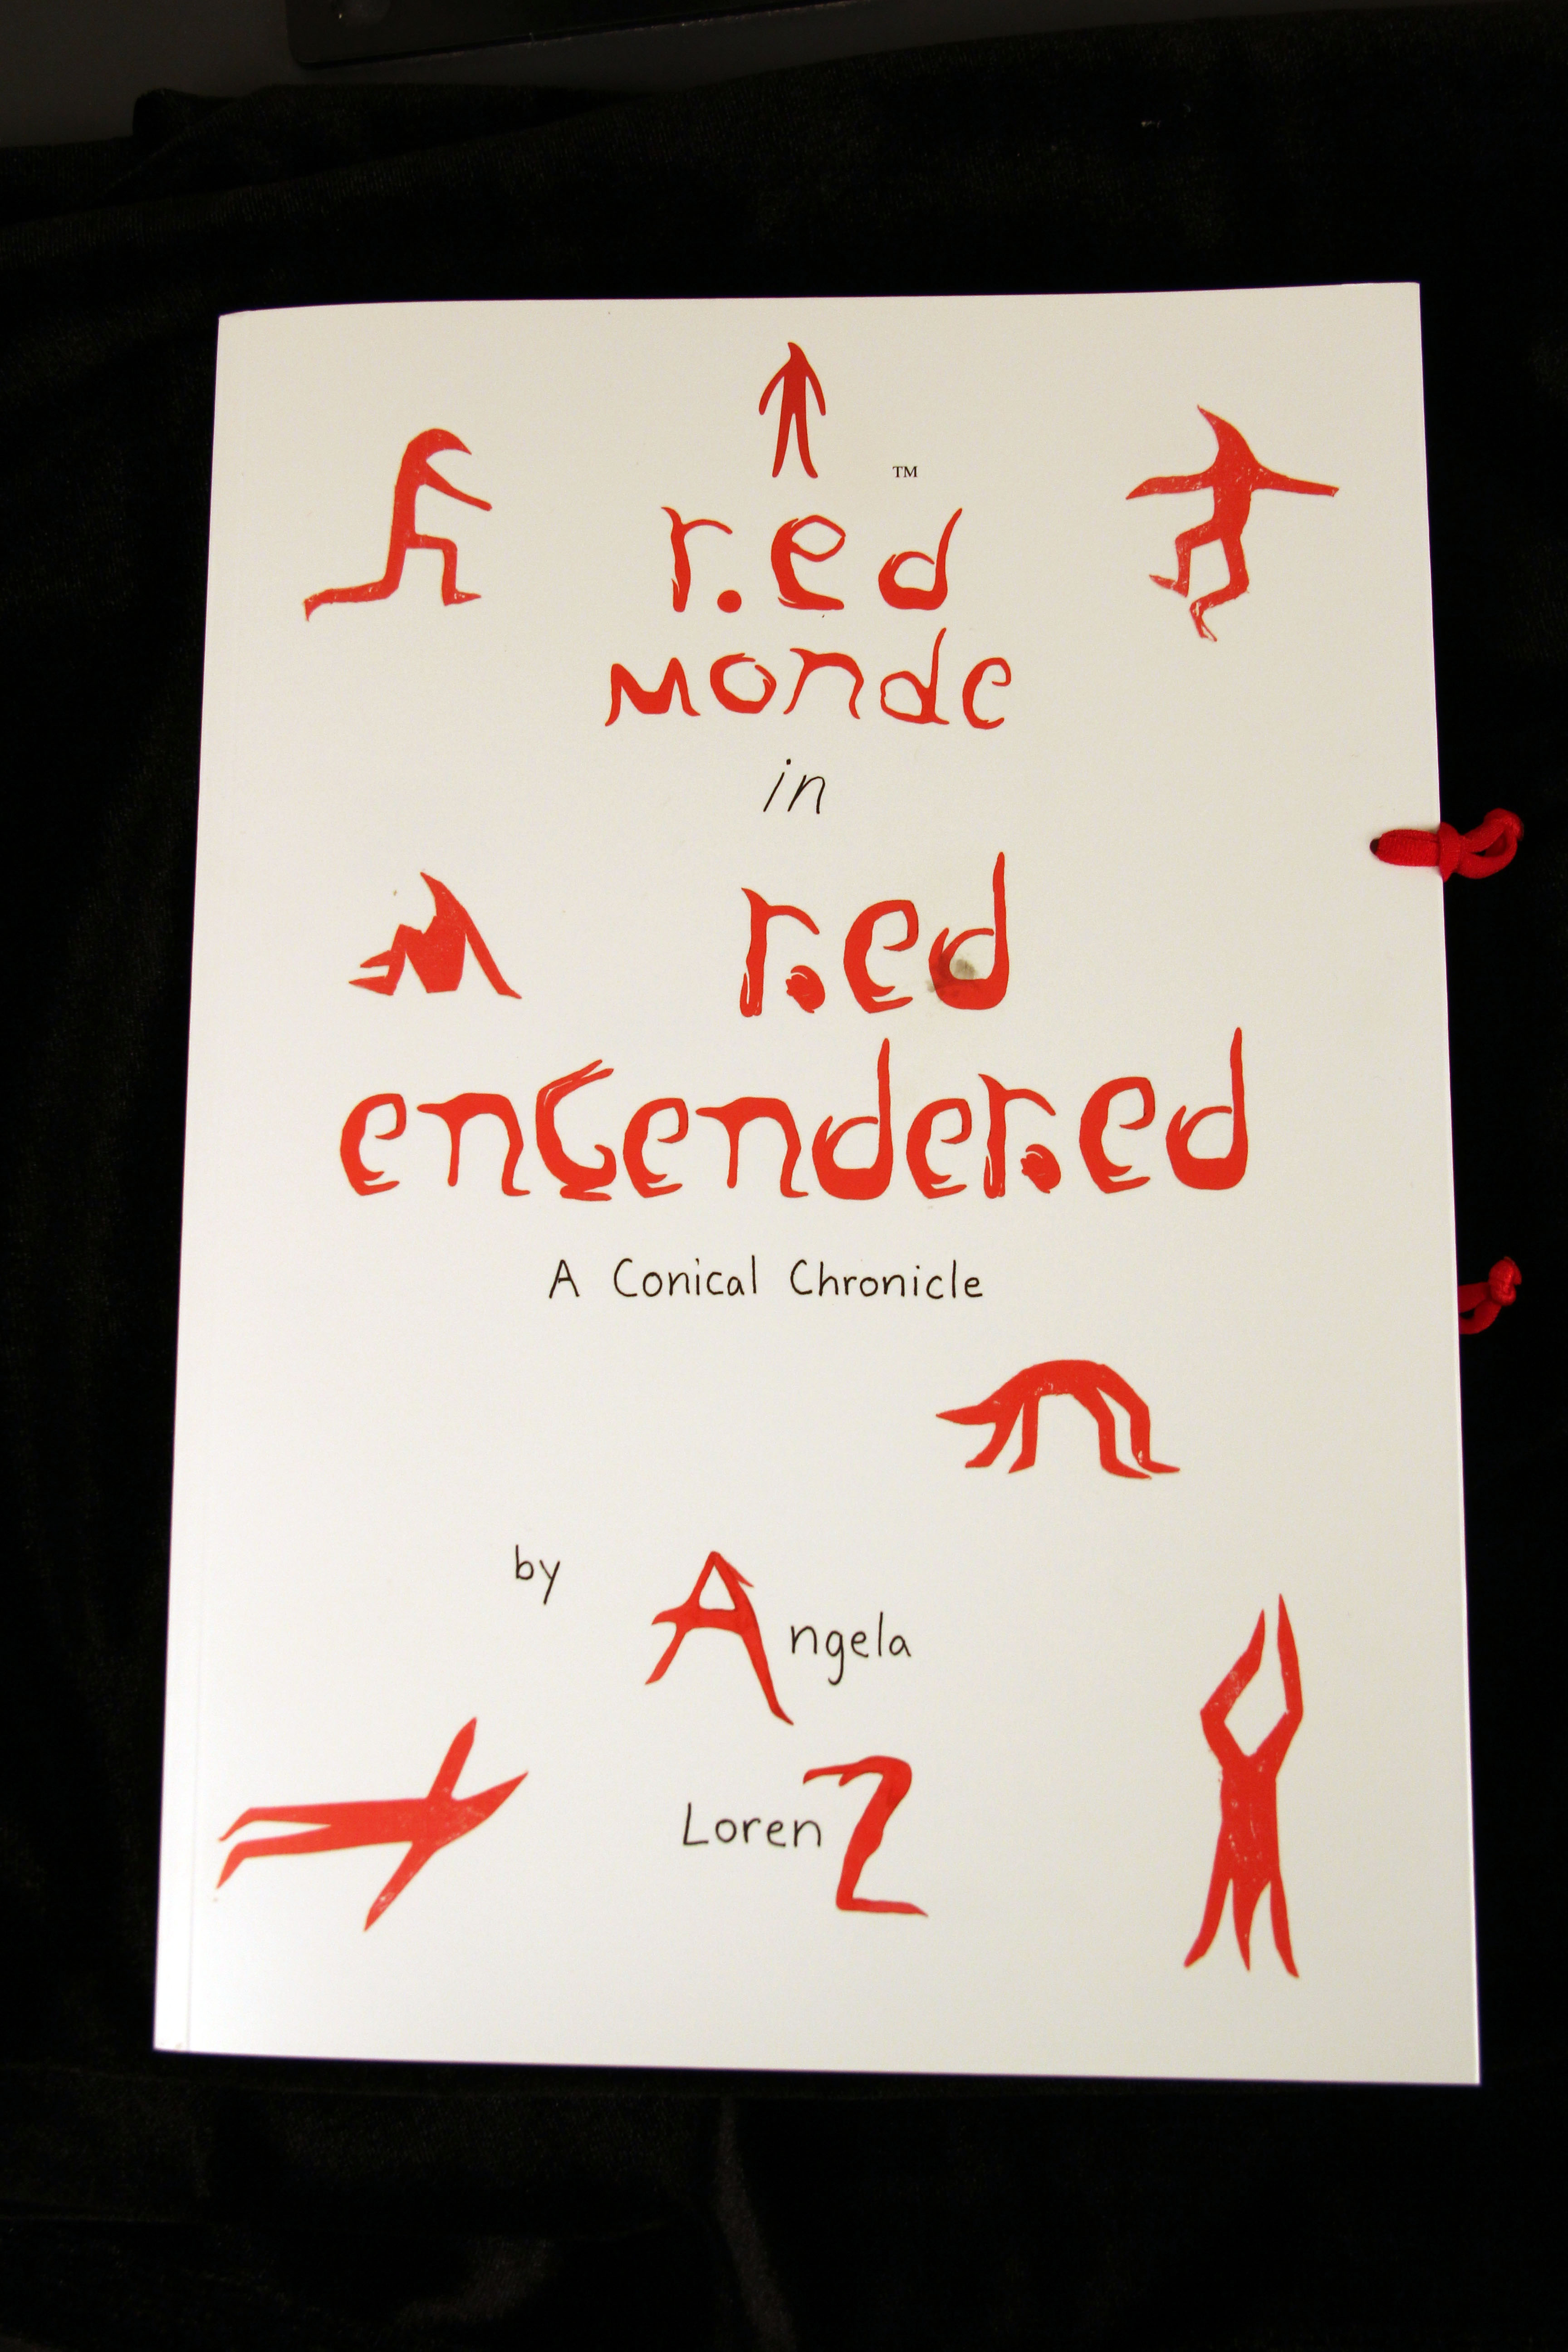 ™
r.ed
monde
in
r.ed
engender.ed
A Conical Chronicle
by
Angela
LorenZ